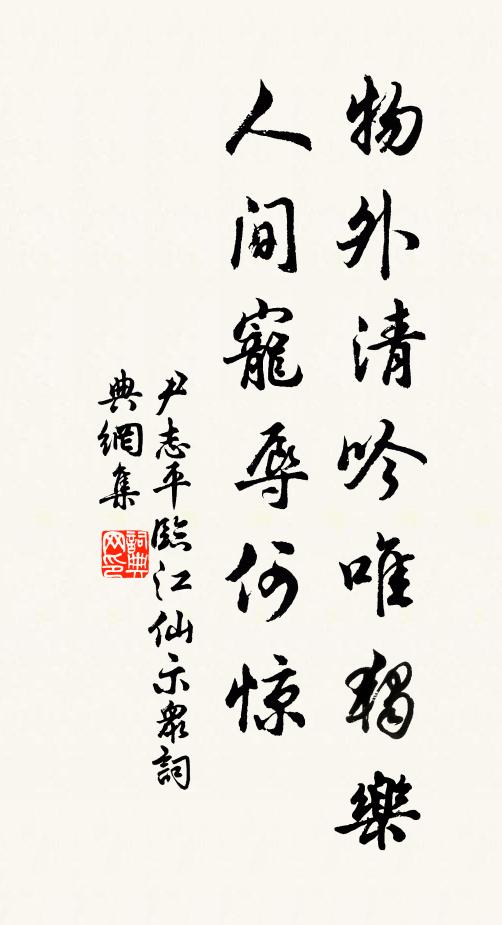 物外清吟唯獨樂
人间寵辱何惊
尹志平臨江仙示衆詞
典網集
詞典网印